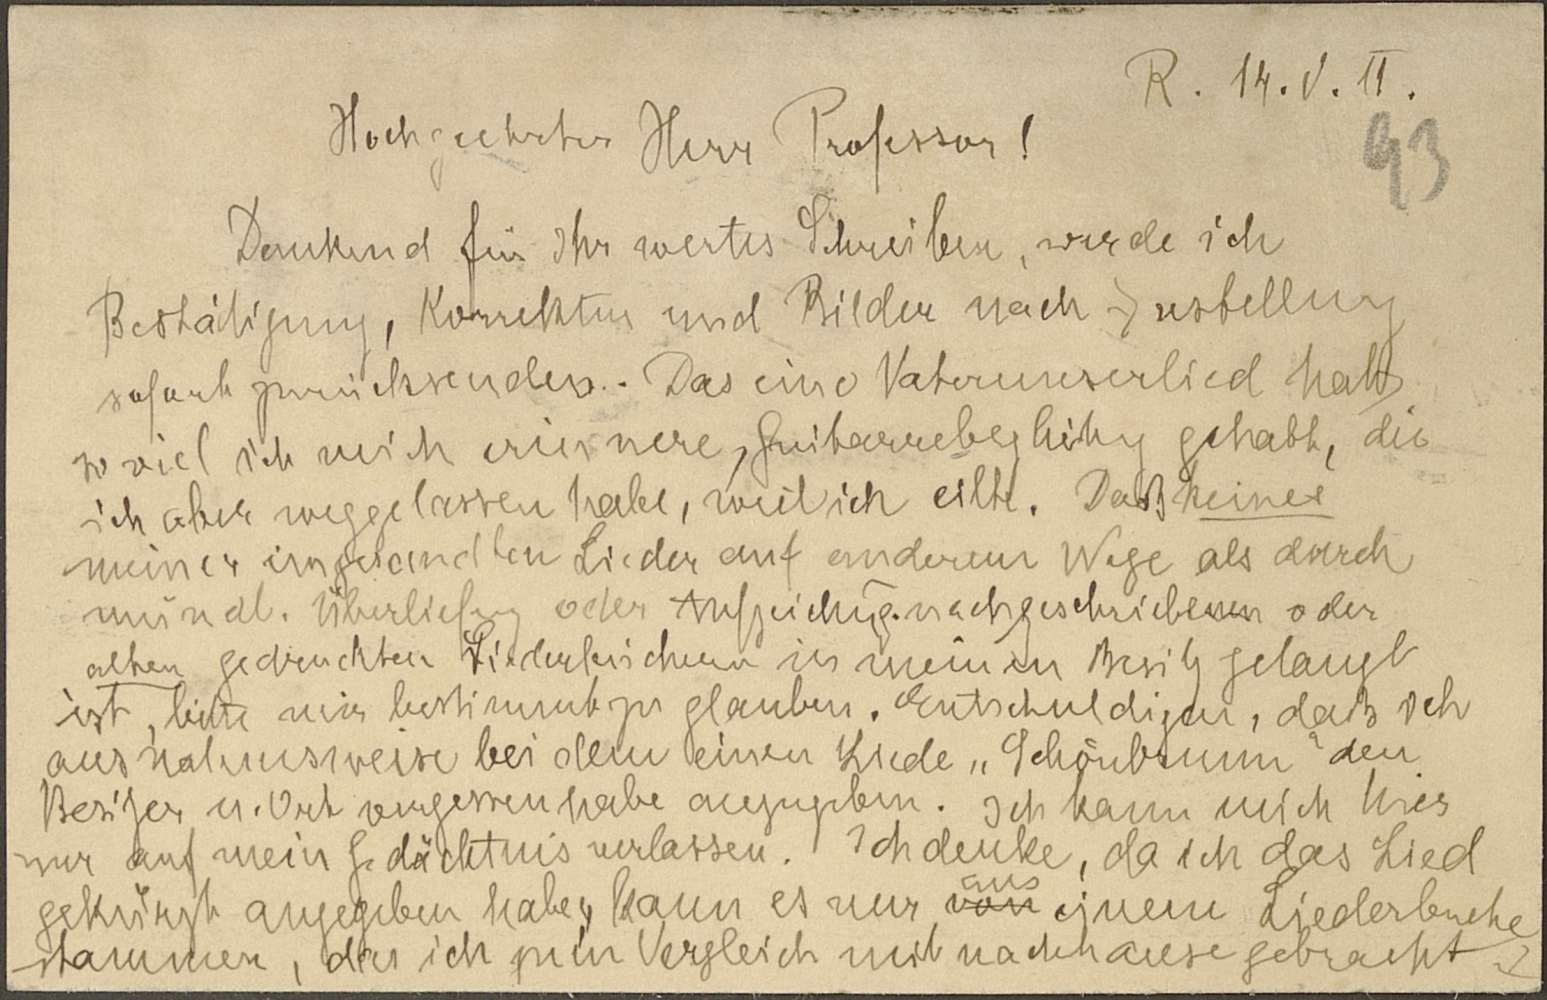 R. 14. V. 11.
93
Hochgeehrter Herr Professor!
Dankend für Ihr wertes Schreiben, werde ich
Bestätigung, Korrektur und Bilder nach Zustellung
sofort zurücksenden. Das eine Vaterunserlied hat
so viel ich mich erinnere, Guitarrebegleitung gehabt, die
ich aber weggelassen habe, weil ich eilte. Daß keines
meiner eingesandten Lieder auf anderem Wege als durch
mündl. Überliefng oder Aufzeichng. nachgeschrieben oder
alten gedruckten Liederbüchern in meinen Besitz gelangt
ist, bitte mir bestimmt zu glauben. Entschuldigen, daß ich
ausnahmsweise bei dem einen Liede „Schönbrunn" den
Besitzer u. Ort vergessen habe anzugeben. Ich kann mich hier
nur auf mein Gedächtnis verlassen. Ich denke, da ich das Lied
gekürzt angegeben habe, kann es nur von aus einem Liederbuche
stammen, das ich zum Vergleich mit nachhause gebracht